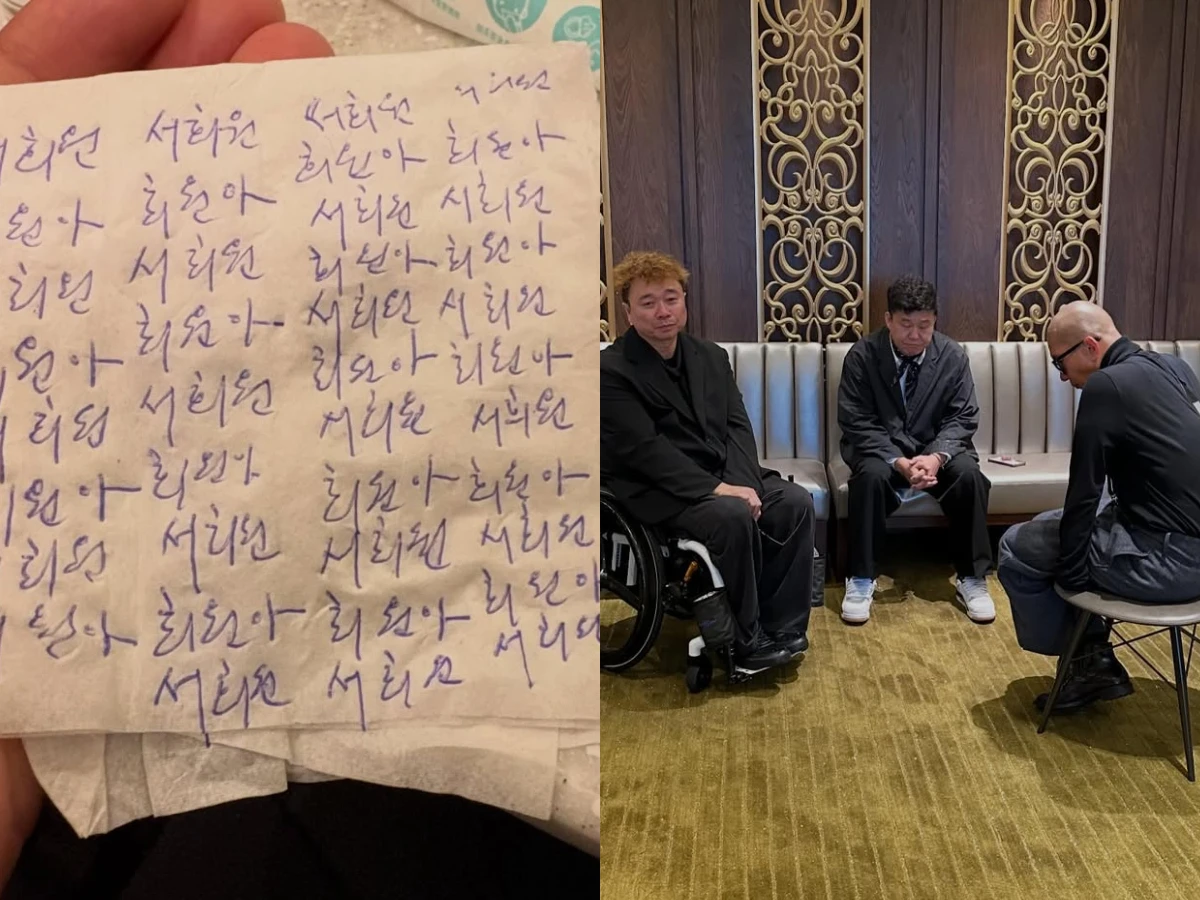 희원 서희원 서희원 서희원
원아 희원아 희원아 희원아
희원 서희원 서희원 서희원
원아 희원아 희원아 희원아
희원 서희원 서희원 서희원
원아 희원아 희원아 희원아
희원 서희원 서희원 서희원
원아 희원아 희원아 희원아
서희원 서희원 서희원
희원아 희원아
서희원 서희원